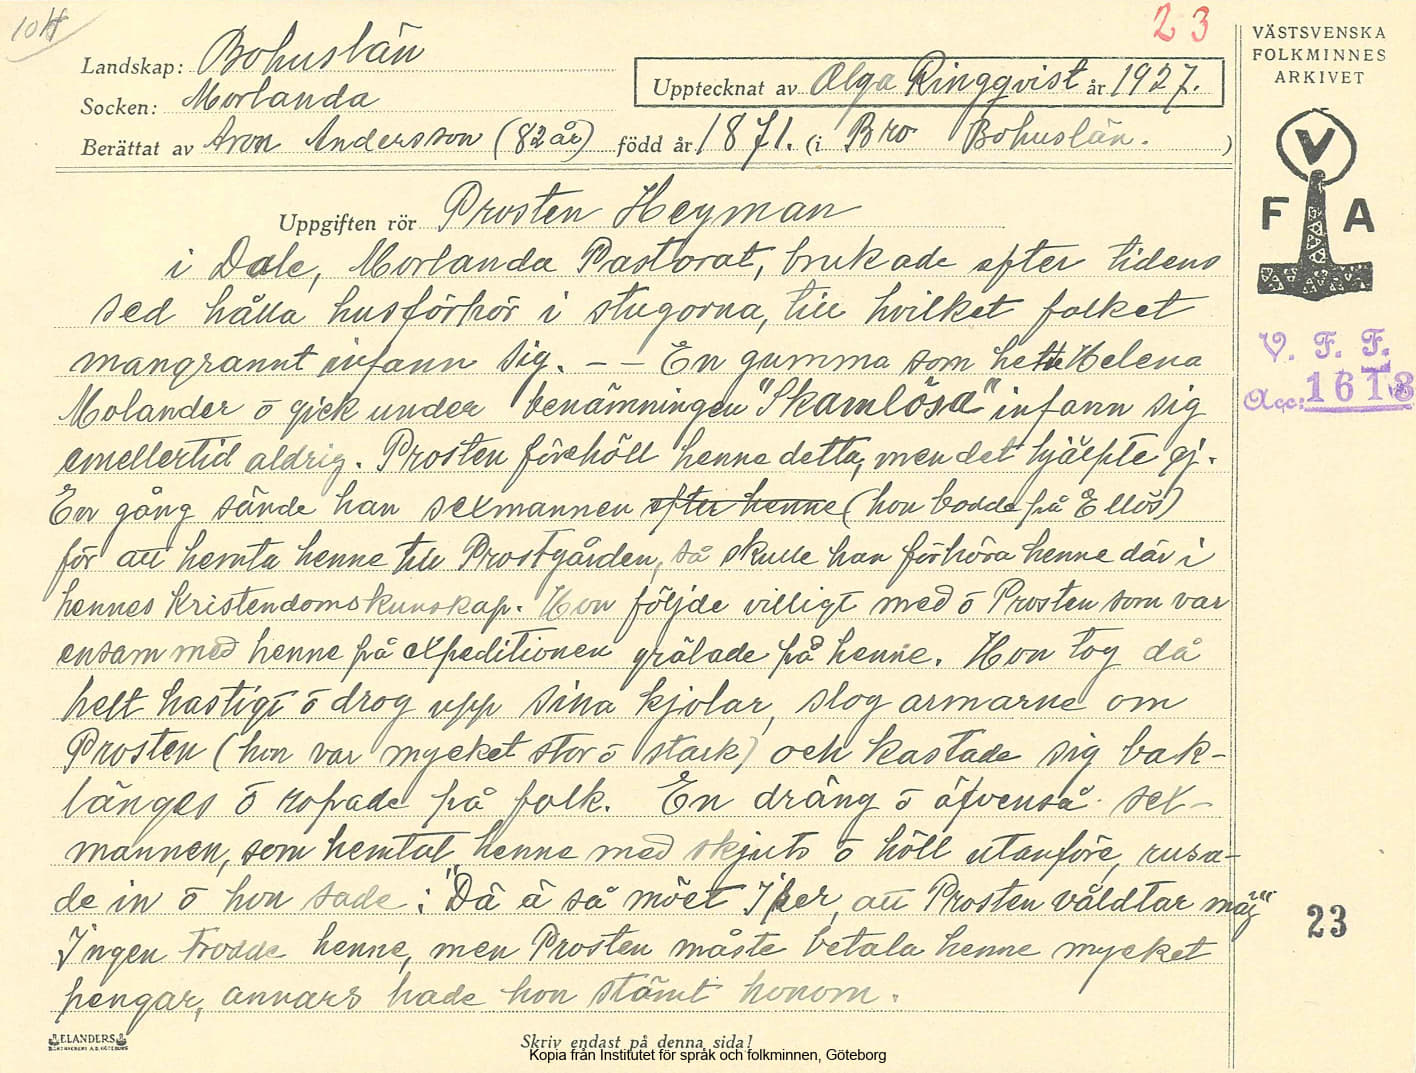 23
VÄSTSVENSKA
FOLKMINNES
ARKIVET
Landskap: Bohuslän
Upptecknat av Olga Ringqvist år 1927.
Socken: Morlanda
Berättat av Aron Andersson (82 år) född år 1871. (i Bro Bohuslän. )
V
F A
Uppgiften rör Prosten Heyman
i Dale, Morlanda Pastorat, brukade efter tidens
sed hålla husförhör i stugorna, till hvilket folket
mangrannt infann sig. – – En gumma som hette Helena
Molander o gick under benämningen "Skamlösa" infann sig
emellertid aldrig. Prosten förehöll henne detta, men det hjälpte ej.
En gång sände han sexmannen efter henne (hon bodde på Ellös)
för att hemta henne till Prostgården, så skulle han förhöra henne där i
hennes Kristendomskunskap. Hon följde villigt med o Prosten som var
ensam med henne på expeditionen grälade på henne. Hon tog då
helt hastigt o drog upp sina kjolar, slog armarne om
Prosten (hon var mycket stor o stark) och kastade sig bak-
länges o ropade på folk. En dräng o äfvenså sex-
mannen, som hemtat henne med skjuts o höll utanföre, rusa-
de in o hon sade: "Dä ä så möet I ser, att Prosten våldtar mäg"
Ingen trodde henne, men Prosten måste betala henne mycket
pengar, annars hade hon stämt honom.
V. F. F.
Acc: 1613
23
ELANDERS
Skriv endast på denna sida!
Kopia från Institutet för språk och folkminnen, Göteborg